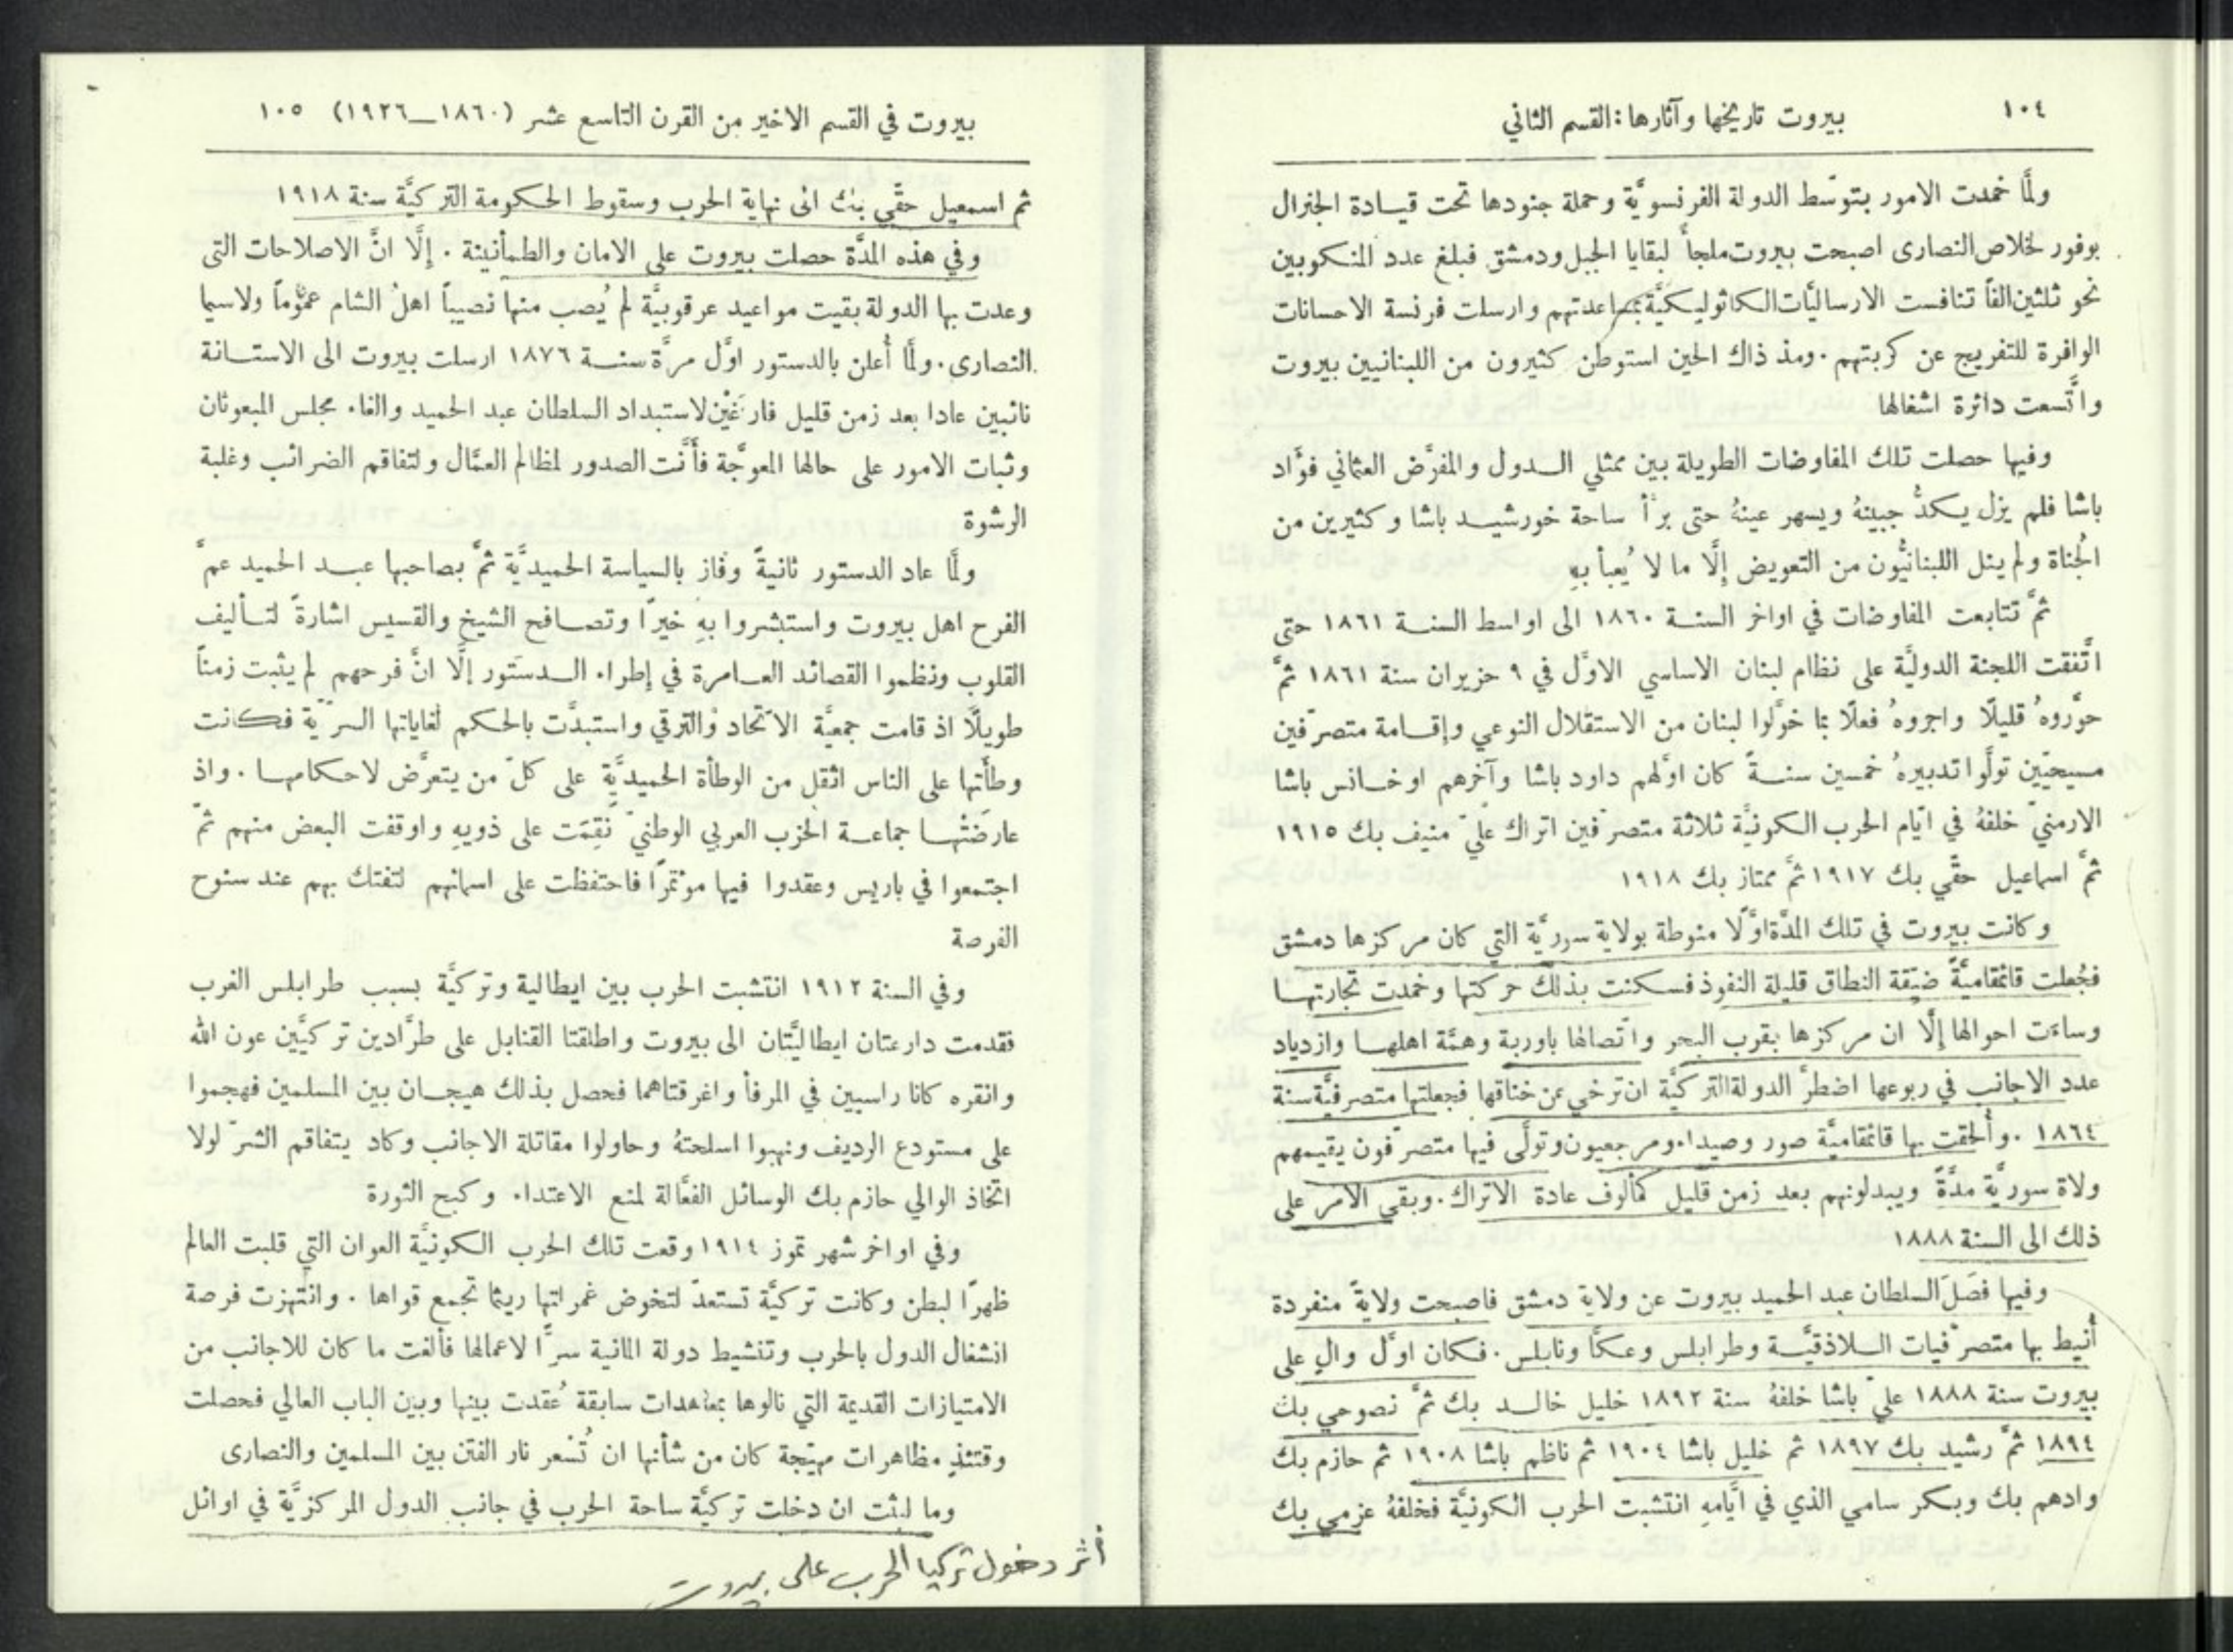 ١٠٤ بيروت تاريخها وآثارها: القسم الثاني
ولمَّا خمدت الامور بتوسّط الدولة الفرنسويَّة وحملة جنودها تحت قيادة الجنرال
بوفور لخلاص النصارى اصبحت بيروت ملجأً لبقايا الجبل ودمشق فبلغ عدد المنكوبين
نحو ثلثين الفاً تنافست الارساليَّات الكاثوليكيَّة بمساعدتهم وارسلت فرنسة الاحسانات
الوافرة للتفريج عن كربتهم. ومذ ذاك الحين استوطن كثيرون من اللبنانيين بيروت
واتَّسعت دائرة اشغالها
وفيها حصلت تلك المفاوضات الطويلة بين ممثلي الدول والمفوَّض العثماني فوَّاد
باشا فلم يزل يكدُّ جبينهُ ويسهر عينهُ حتى برأ ساحة خورشيد باشا وكثيرين من
الجُناة ولم ينل اللبنانيُّون من التعويض إلَّا ما لا يُعبأ بهِ
ثمَّ تتابعت المفاوضات في اواخر السنة ١٨٦٠ الى اواسط السنة ١٨٦١ حتى
اتَّفقت اللجنة الدوليَّة على نظام لبنان الاساسي الاوَّل في ٩ حزيران سنة ١٨٦١ ثمَّ
حوَّروهُ قليلًا واجروهُ فعلًا بما خوَّلوا لبنان من الاستقلال النوعي وإقامة متصرّفين
مسيحيّين تولَّوا تدبيرهُ خمسين سنةً كان اوَّلهم داود باشا وآخرهم اوخانس باشا
الارمنيّ خلفهُ في ايَّام الحرب الكونيَّة ثلاثة متصرّفين اتراك عليّ منيف بك ١٩١٥
ثمَّ اسماعيل حقّي بك ١٩١٧ ثمَّ ممتاز بك ١٩١٨
وكانت بيروت في تلك المدَّة اوَّلًا منوطة بولاية سوريَّة التي كان مركزها دمشق
فجُعلت قائمقاميَّةً ضيّقة النطاق قليلة النفوذ فسكنت بذلك حركتها وخمدت تجارتها
وساءت احوالها إلَّا ان مركزها بقرب البحر واتّصالها باوربة وهمَّة اهلها وازدياد
عدد الاجانب في ربوعها اضطرَّ الدولة التركيَّة ان ترخي عن خناقها فجعلتها متصرفيَّة سنة
١٨٦٤. وأُلحقت بها قائمقاميَّة صور وصيداء ومرجعيون وتولَّى فيها متصرّفون يقيمهم
ولاة سوريَّة مدَّةً ويبدلونهم بعد زمن قليل كمألوف عادة الاتراك. وبقي الامر على
ذلك الى السنة ١٨٨٨
وفيها فصَلَ السلطان عبد الحميد بيروت عن ولاية دمشق فاصبحت ولايةً منفردة
أُنيط بها متصرّفيات اللاذقيَّة وطرابلس وعكَّا ونابلس. فكان اوَّل والٍ على
بيروت سنة ١٨٨٨ عليّ باشا خلفهُ سنة ١٨٩٢ خليل خالد بك ثمَّ نصوحي بك
١٨٩٤ ثمَّ رشيد بك ١٨٩٧ ثم خليل باشا ١٩٠٤ ثم ناظم باشا ١٩٠٨ ثم حازم بك
وادهم بك وبكر سامي الذي في ايَّامهِ انتشبت الحرب الكونيَّة فخلفهُ عزمي بك
بيروت في القسم الاخير من القرن التاسع عشر (١٨٦٠–١٩٢٦) ١٠٥
ثم اسمعيل حقّي بك الى نهاية الحرب وسقوط الحكومة التركيَّة سنة ١٩١٨
وفي هذه المدَّة حصلت بيروت على الامان والطمأنينة. إلَّا انَّ الاصلاحات التي
وعدت بها الدولة بقيت مواعيد عرقوبيَّة لم يُصب منها نصيباً اهلُ الشام عموماً ولاسيما
النصارى. ولمَّا أُعلن بالدستور اوَّل مرَّة سنة ١٨٧٦ ارسلت بيروت الى الاستانة
نائبين عادا بعد زمن قليل فارغَيْن لاستبداد السلطان عبد الحميد والغاء مجلس المبعوثان
وثبات الامور على حالها المعوَجَّة فأنَّت الصدور لمظالم العمَّال ولتفاقم الضرائب وغلبة
الرشوة
ولمَّا عاد الدستور ثانيةً وفاز بالسياسة الحميديَّة ثمَّ بصاحبها عبد الحميد عمَّ
الفرح اهل بيروت واستبشروا بهِ خيرًا وتصافح الشيخ والقسيس اشارةً لتأليف
القلوب ونظموا القصائد العامرة في إطراء الدستور إلَّا انَّ فرحهم لم يثبت زمناً
طويلًا اذ قامت جمعيَّة الاتّحاد والترقي واستبدَّت بالحكم لغاياتها السرّيَّة فكانت
وطأَتها على الناس اثقل من الوطأة الحميديَّة على كلّ من يتعرَّض لاحكامها. واذ
عارَضَتْها جماعة الحزب العربي الوطنيّ نَقِمَت على ذويهِ واوقفت البعض منهم ثمّ
اجتمعوا في باريس وعقدوا فيها موْتمرًا فاحتفظت على اسمائهم لتفتك بهم عند سنوح
الفرصة
وفي السنة ١٩١٢ انتشبت الحرب بين ايطالية وتركيَّة بسبب طرابلس الغرب
فقدمت دارعتان ايطاليَّتان الى بيروت واطلقتا القنابل على طرَّادين تركيَّين عون الله
وانقره كانا راسيين في المرفأ واغرقتاهما فحصل بذلك هيجان بين المسلمين فهجموا
على مستودع الرديف ونهبوا اسلحتهُ وحاولوا مقاتلة الاجانب وكاد يتفاقم الشرّ لولا
اتّخاذ الوالي حازم بك الوسائل الفعَّالة لمنع الاعتداء وكبح الثورة
وفي اواخر شهر تموز ١٩١٤ وقعت تلك الحرب الكونيَّة العوان التي قلبت العالم
ظهرًا لبطن وكانت تركيَّة تستعدّ لتخوض غمراتها ريثما تجمع قواها. وانتهزت فرصة
انشغال الدول بالحرب وتنشيط دولة المانية سرًّا لاعمالها فألغت ما كان للاجانب من
الامتيازات القديمة التي نالوها بمعاهدات سابقة عُقدت بينها وبين الباب العالي فحصلت
وقتئذٍ مظاهرات مهيّجة كان من شأنها ان تُسعر نار الفتن بين المسلمين والنصارى
وما لبثت ان دخلت تركيَّة ساحة الحرب في جانب الدول المركزيَّة في اوائل
أثر دخول تركيا الحرب على بيروت